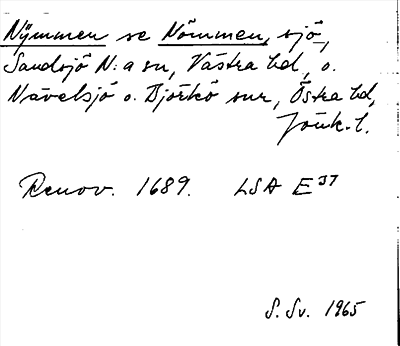 Nÿmmen se Nömmen, sjö,
Sandsjö N:a sn, Västra hd, o.
Nävelsjö o. Björkö snr, Östra hd,
Jönk. l.
Renov. 1689. LSA E 37
S. Sv. 1965